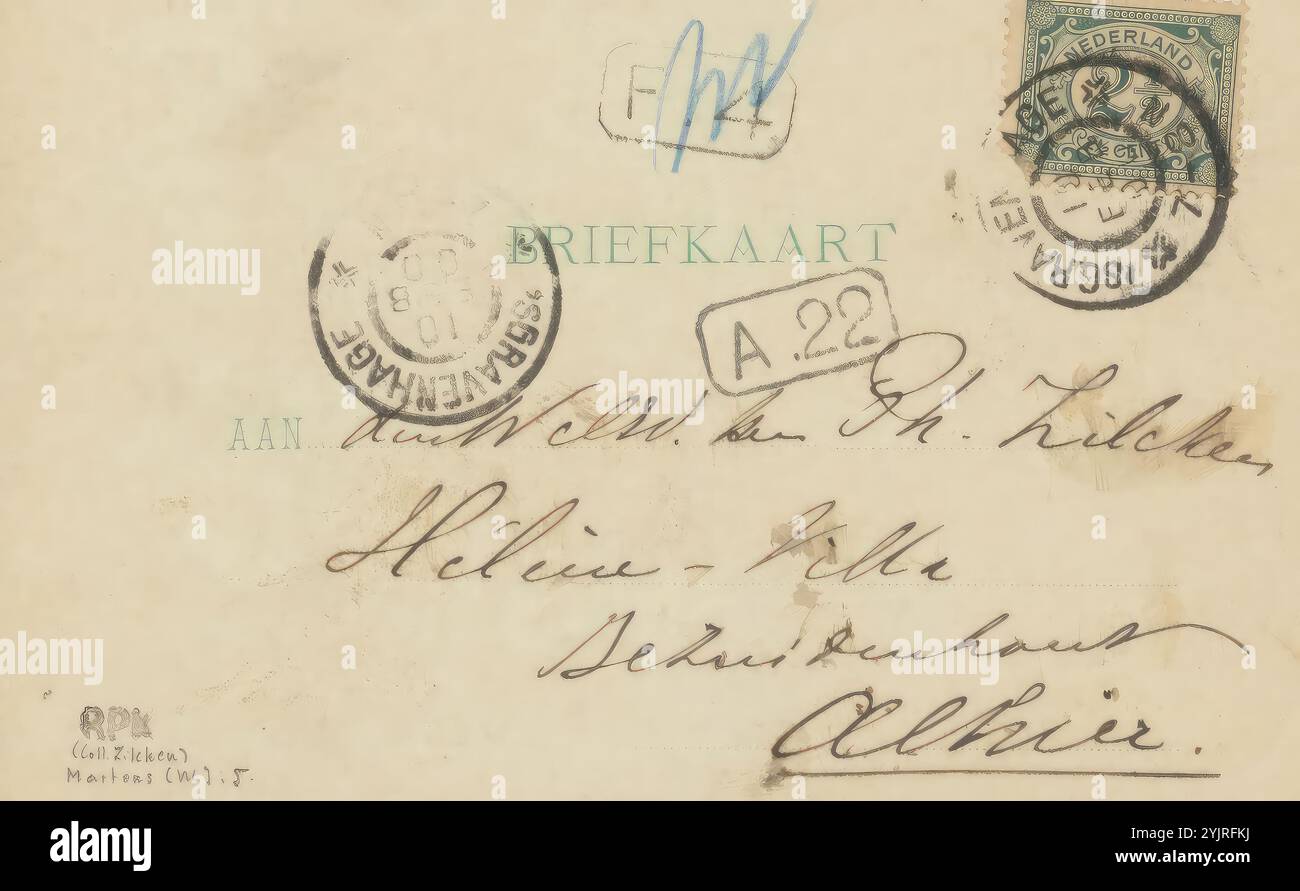 F 4
NEDERLAND
2½
CENT
'SGRAVENHAGE
BRIEFKAART
'SGRAVENHAGE
A.22
AAN den WelEd. heer Ph. Zilcken
Hélène-Villa
Bezuidenhout
Alhier.
RPK
(Coll. Zilcken)
Martens (W.). 5.
alamy
Image ID: 2YJRFKJ
www.alamy.com